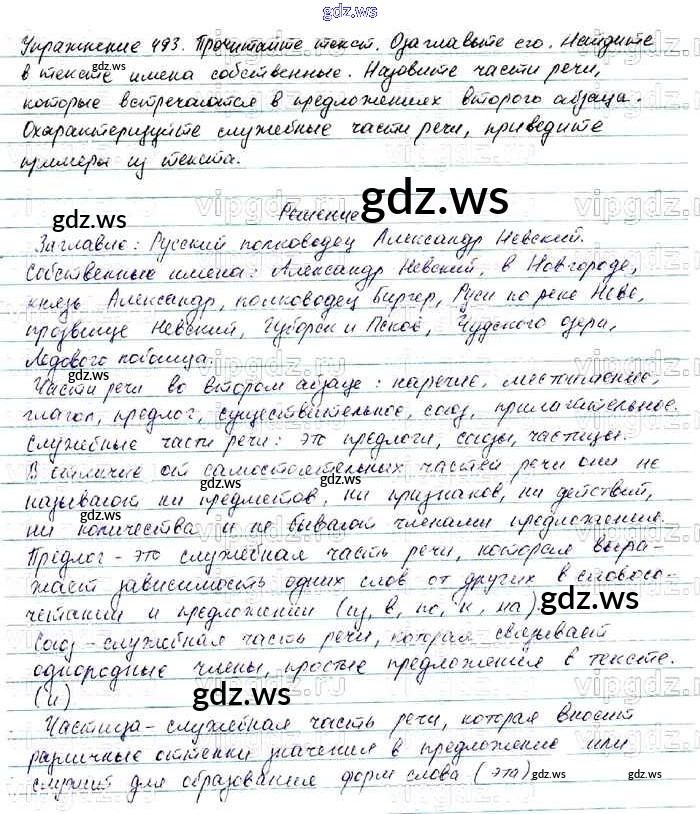 gdz.ws
Упражнение 493. Прочитайте текст. Озаглавьте его. Найдите
в тексте имена собственные. Назовите части речи,
которые встречаются в предложениях второго абзаца.
Охарактеризуйте служебные части речи, приведите
примеры из текста.
Решение
Заглавие: Русский полководец Александр Невский.
Собственные имена: Александр Невский, в Новгороде,
князь Александр, полководец Биргер, Руси по реке Неве,
прозвище Невский, Изборск и Псков, Чудского озера,
Ледового побоища.
Части речи во втором абзаце: наречие, местоимение,
глагол, предлог, существительное, союз, прилагательное.
Служебные части речи: это предлоги, союзы, частицы.
В отличие от самостоятельных частей речи они не
называют ни предметов, ни признаков, ни действий,
ни количества и не бывают членами предложения.
Предлог - это служебная часть речи, которая выра-
жает зависимость одних слов от других в словосо-
четании и предложении (из, в, по, к, на)
Союз - служебная часть речи, которая связывает
однородные члены, простые предложения в тексте.
(и)
Частица - служебная часть речи, которая вносит
различные оттенки значения в предложение или
служит для образования форм слова (эта)